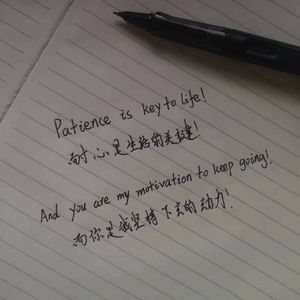 Patience is key to life!
耐心是生活的关键!
And you are my motivation to keep going!
而你是我坚持下去的动力!